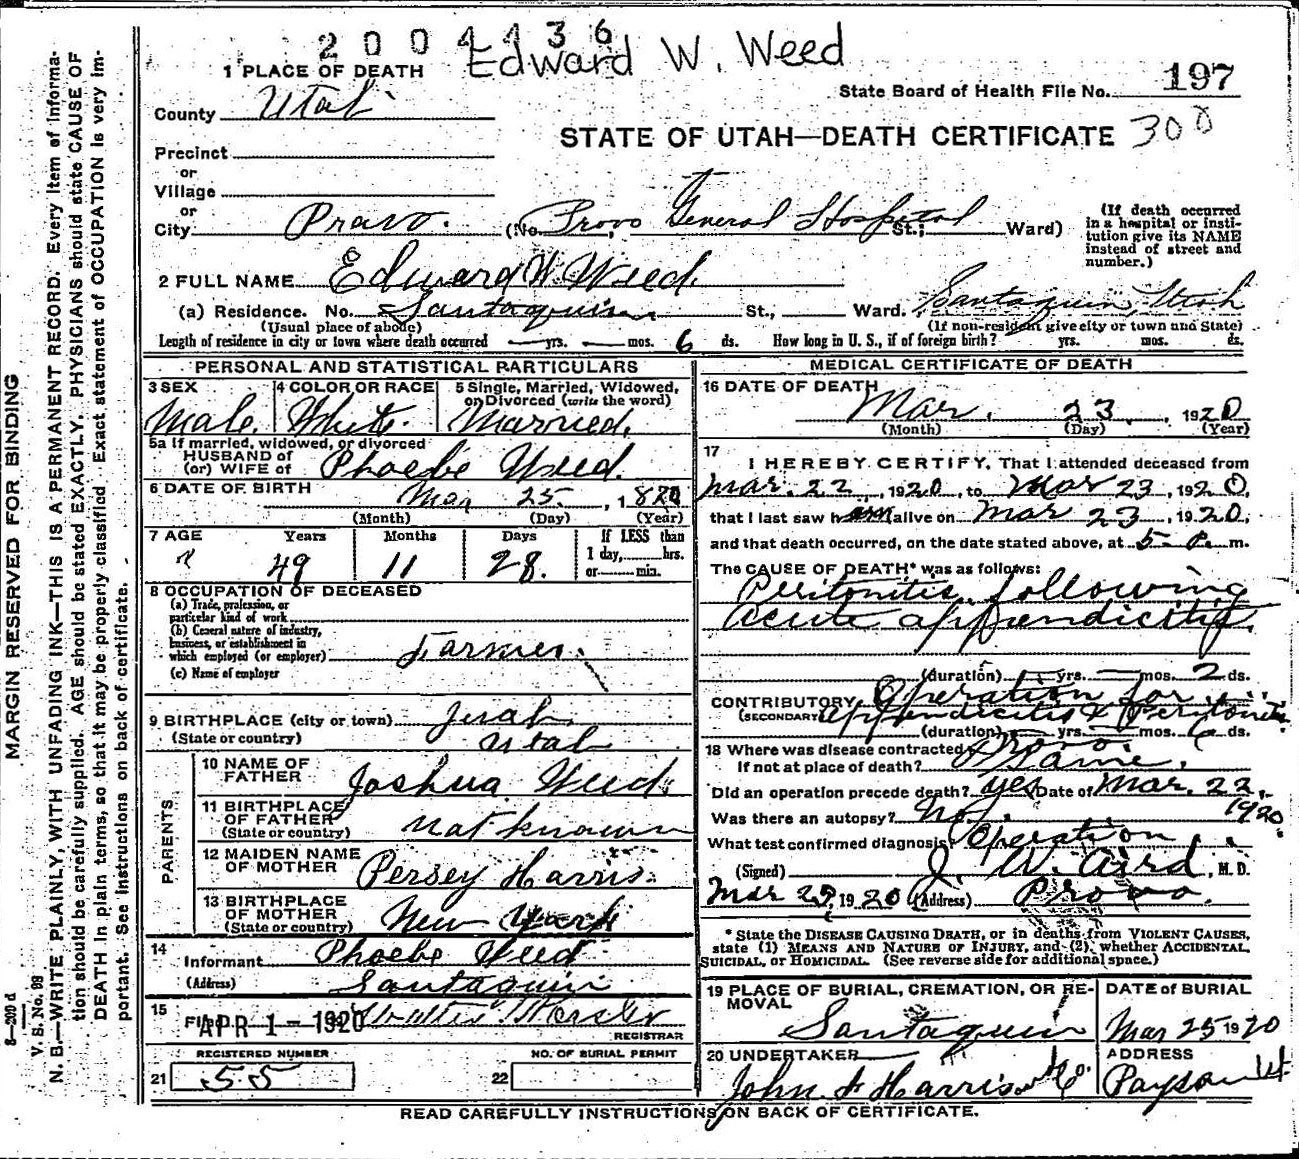 2004136
Edward W. Weed
1 PLACE OF DEATH
State Board of Health File No. 197
County Utah
STATE OF UTAH—DEATH CERTIFICATE 300
Precinct
or
Village
or
City Provo. (No. Provo General Hospital St.; Ward)
(If death occurred in a hospital or institution give its NAME instead of street and number.)
2 FULL NAME Edward W. Weed.
(a) Residence. No. Santaquin St., Ward. Santaquin, Utah
(Usual place of abode) (If non-resident give city or town and State)
Length of residence in city or town where death occurred — yrs. — mos. 6 ds. How long in U. S., if of foreign birth? yrs. mos. ds.
PERSONAL AND STATISTICAL PARTICULARS
3 SEX Male.
4 COLOR OR RACE White.
5 Single, Married, Widowed, or Divorced (write the word) Married.
5a If married, widowed, or divorced
HUSBAND of
(or) WIFE of Phoebe Weed.
6 DATE OF BIRTH Mar 25, 1870
(Month) (Day) (Year)
7 AGE Years Months Days If LESS than
49 11 28. 1 day, hrs.
or min.
8 OCCUPATION OF DECEASED
(a) Trade, profession, or
particular kind of work
(b) General nature of industry,
business, or establishment in
which employed (or employer) Farmer.
(c) Name of employer
9 BIRTHPLACE (city or town) Juab
(State or country) Utah
PARENTS
10 NAME OF FATHER Joshua Weed.
11 BIRTHPLACE OF FATHER
(State or country) Not known
12 MAIDEN NAME OF MOTHER Persey Harris.
13 BIRTHPLACE OF MOTHER
(State or country) New York
14 Informant Phoebe Weed
(Address) Santaquin
15 Filed APR 1 - 1920
REGISTRAR
REGISTERED NUMBER
21 55
NO. OF BURIAL PERMIT
22
MEDICAL CERTIFICATE OF DEATH
16 DATE OF DEATH
Mar. 23, 1920
(Month) (Day) (Year)
17
I HEREBY CERTIFY, That I attended deceased from
Mar. 22, 1920, to Mar 23, 1920,
that I last saw him alive on Mar 23, 1920,
and that death occurred, on the date stated above, at 5 P. m.
The CAUSE OF DEATH* was as follows:
Peritonitis following
acute appendicitis.
(duration) — yrs. — mos. 2 ds.
CONTRIBUTORY Operation for
(SECONDARY) appendicitis & Peritonitis
(duration) — yrs. — mos. 6 ds.
18 Where was disease contracted Provo.
If not at place of death? Same.
Did an operation precede death? yes Date of Mar. 22, 1920
Was there an autopsy? No.
What test confirmed diagnosis? Operation
(Signed) J. W. Aird, M. D.
Mar 25, 1920 (Address) Provo.
* State the DISEASE CAUSING DEATH, or in deaths from VIOLENT CAUSES,
state (1) MEANS AND NATURE OF INJURY, and (2) whether ACCIDENTAL,
SUICIDAL, or HOMICIDAL. (See reverse side for additional space.)
19 PLACE OF BURIAL, CREMATION, OR REMOVAL
Santaquin
DATE of BURIAL
Mar 25 1920
20 UNDERTAKER
John F Harrison & Co.
ADDRESS
Payson Ut
READ CAREFULLY INSTRUCTIONS ON BACK OF CERTIFICATE.
MARGIN RESERVED FOR BINDING
8—209 d
V. S. No. 98
N. B.—WRITE PLAINLY, WITH UNFADING INK—THIS IS A PERMANENT RECORD. Every item of information should be carefully supplied. AGE should be stated EXACTLY. PHYSICIANS should state CAUSE OF DEATH in plain terms, so that it may be properly classified. Exact statement of OCCUPATION is very important. See instructions on back of certificate.